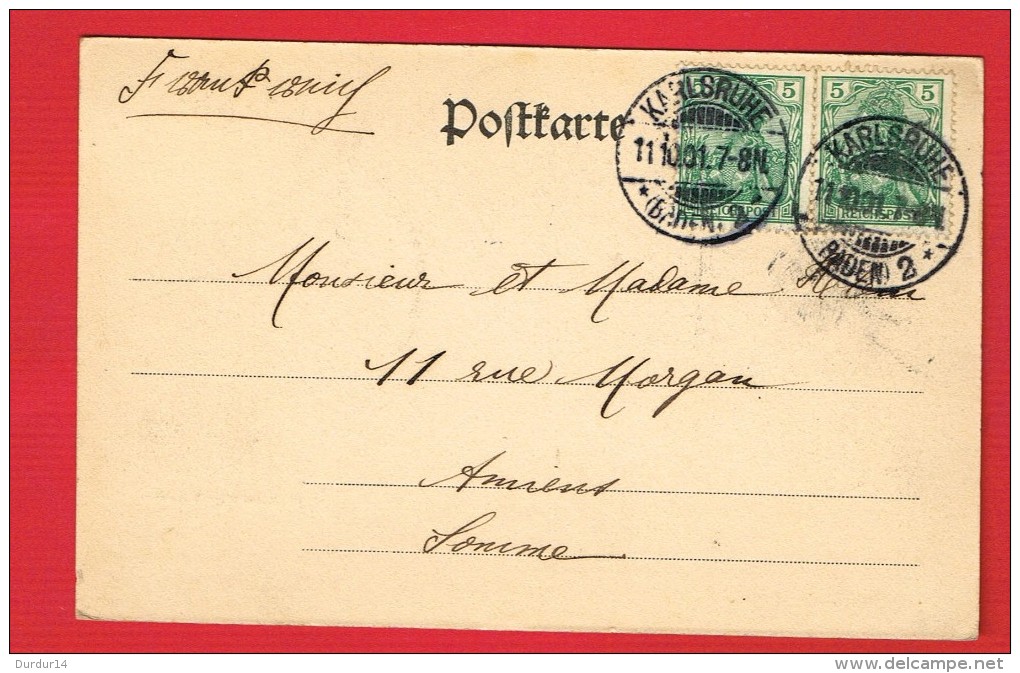 Frankreich
Postkarte
5 5
KARLSRUHE
11.10.01. 7-8N.
* (BADEN). 2 *
REICHSPOST
KARLSRUHE
11.10.01. 7-8N.
(BADEN) 2 *
REICHSPOST
Monsieur et Madame
11 rue Morgan
Amiens
Somme
Durdur14
www.delcampe.net